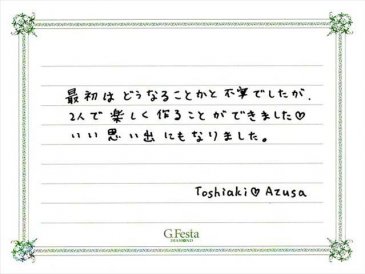 最初はどうなることかと不安でしたが、
2人で楽しく作ることができました♡
いい思い出にもなりました。
Toshiaki♡Azusa
G.Festa
DIAMOND